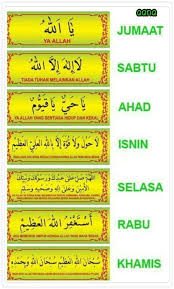 aana
يَا اَللهُ
YA ALLAH
JUMAAT
لَا إِلَهَ إِلَّا اللهُ
TIADA TUHAN MELAINKAN ALLAH
SABTU
يَا حَيُّ يَا قَيُّوْمُ
YA ALLAH YANG SENTIASA HIDUP DAN KEKAL
AHAD
لَا حَوْلَ وَلَا قُوَّةَ إِلَّا بِاللهِ الْعَلِيِّ الْعَظِيْمِ
ISNIN
SELASA
أَسْتَغْفِرُ اللهَ الْعَظِيْمَ
RABU
سُبْحَانَ اللهِ الْعَظِيْمِ سُبْحَانَ اللهِ وَبِحَمْدِهِ
KHAMIS